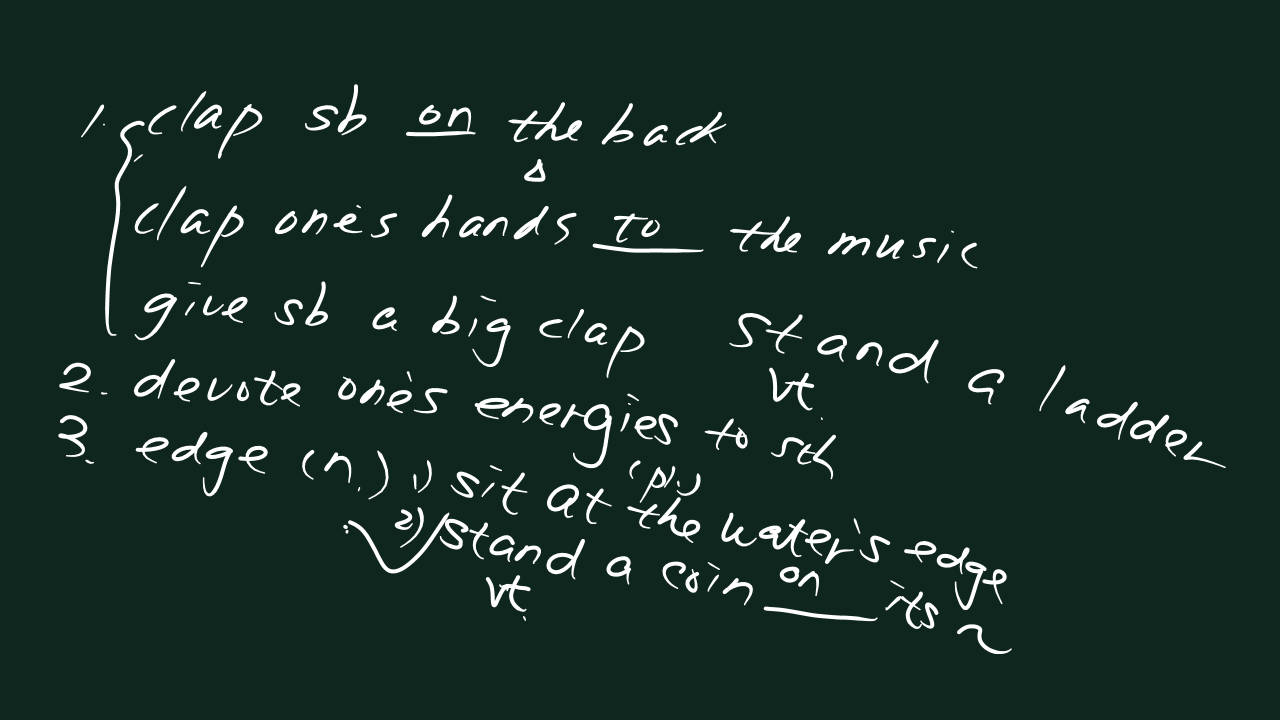 1. clap sb on the back
clap one's hands to the music
give sb a big clap
stand a ladder
vt.
2. devote one's energies to sth
(pl.)
3. edge (n.) 1) sit at the water's edge
2) stand a coin on its ~
vt.